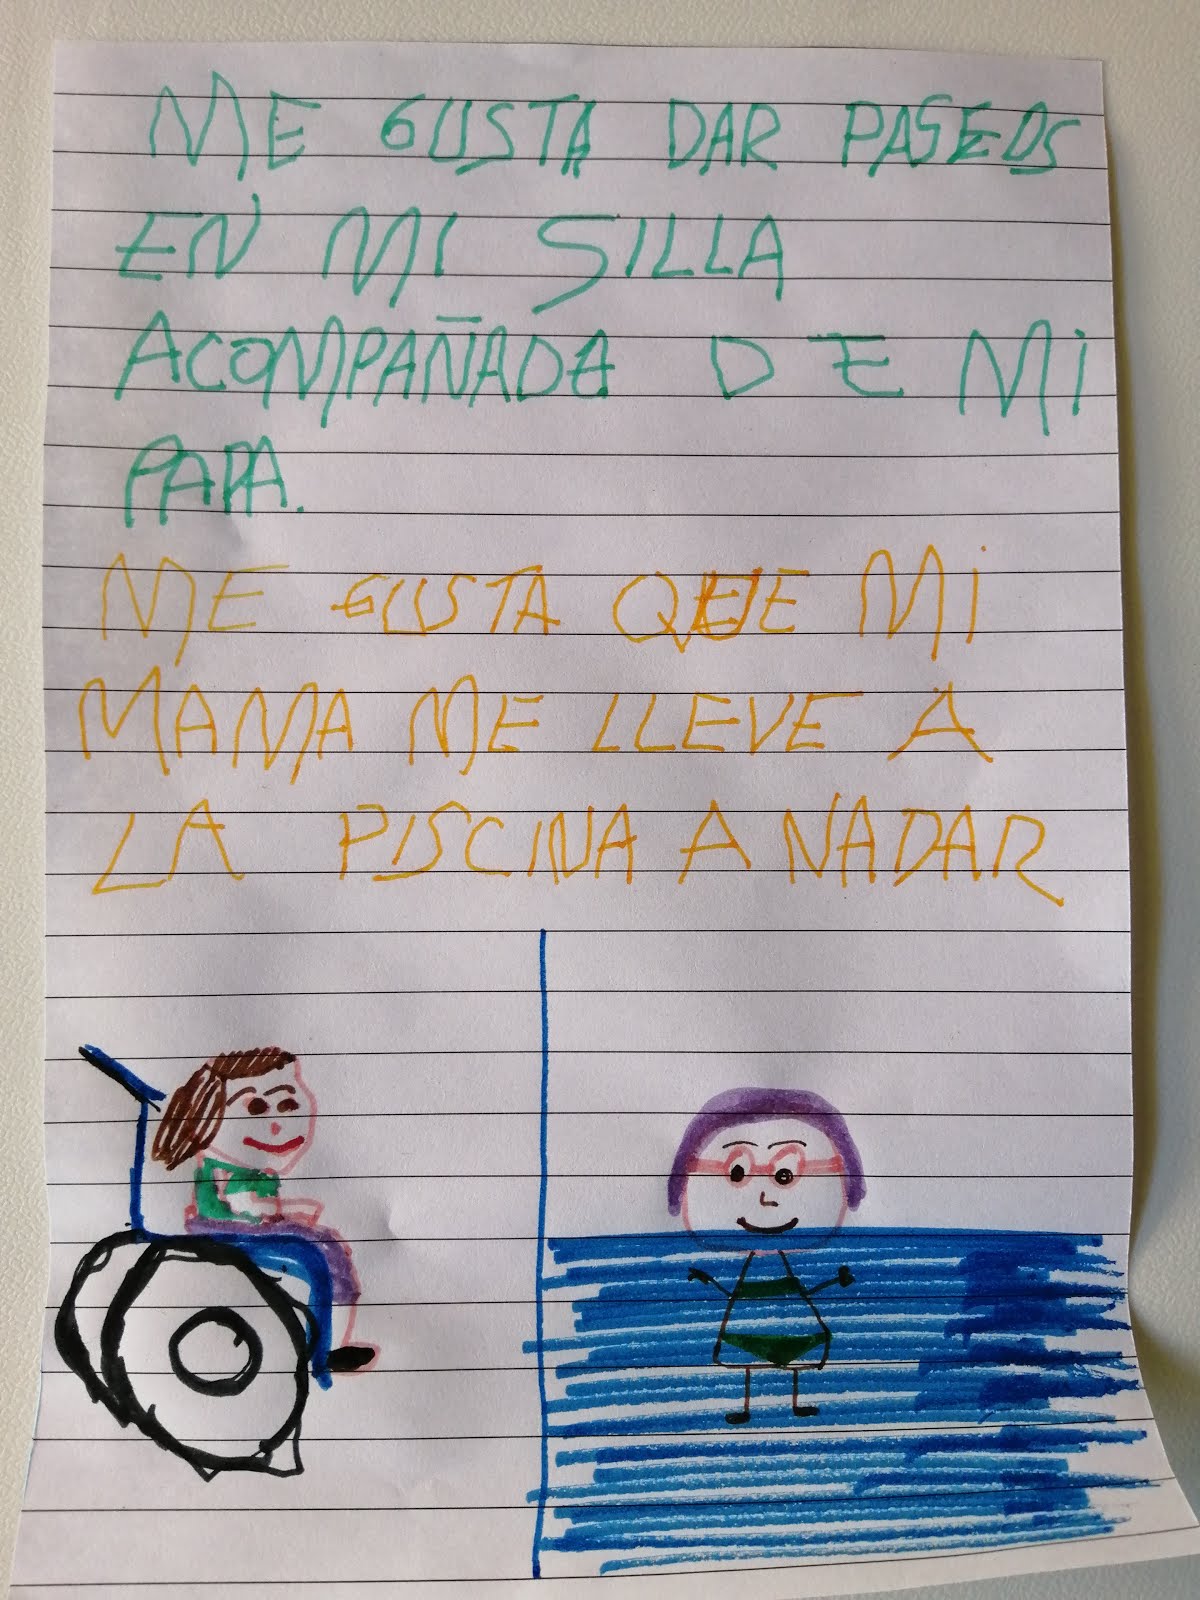 ME GUSTA DAR PASEOS
EN MI SILLA
ACOMPAÑADA DE MI
PAPA.
ME GUSTA QUE MI
MAMA ME LLEVE A
LA PISCINA A NADAR